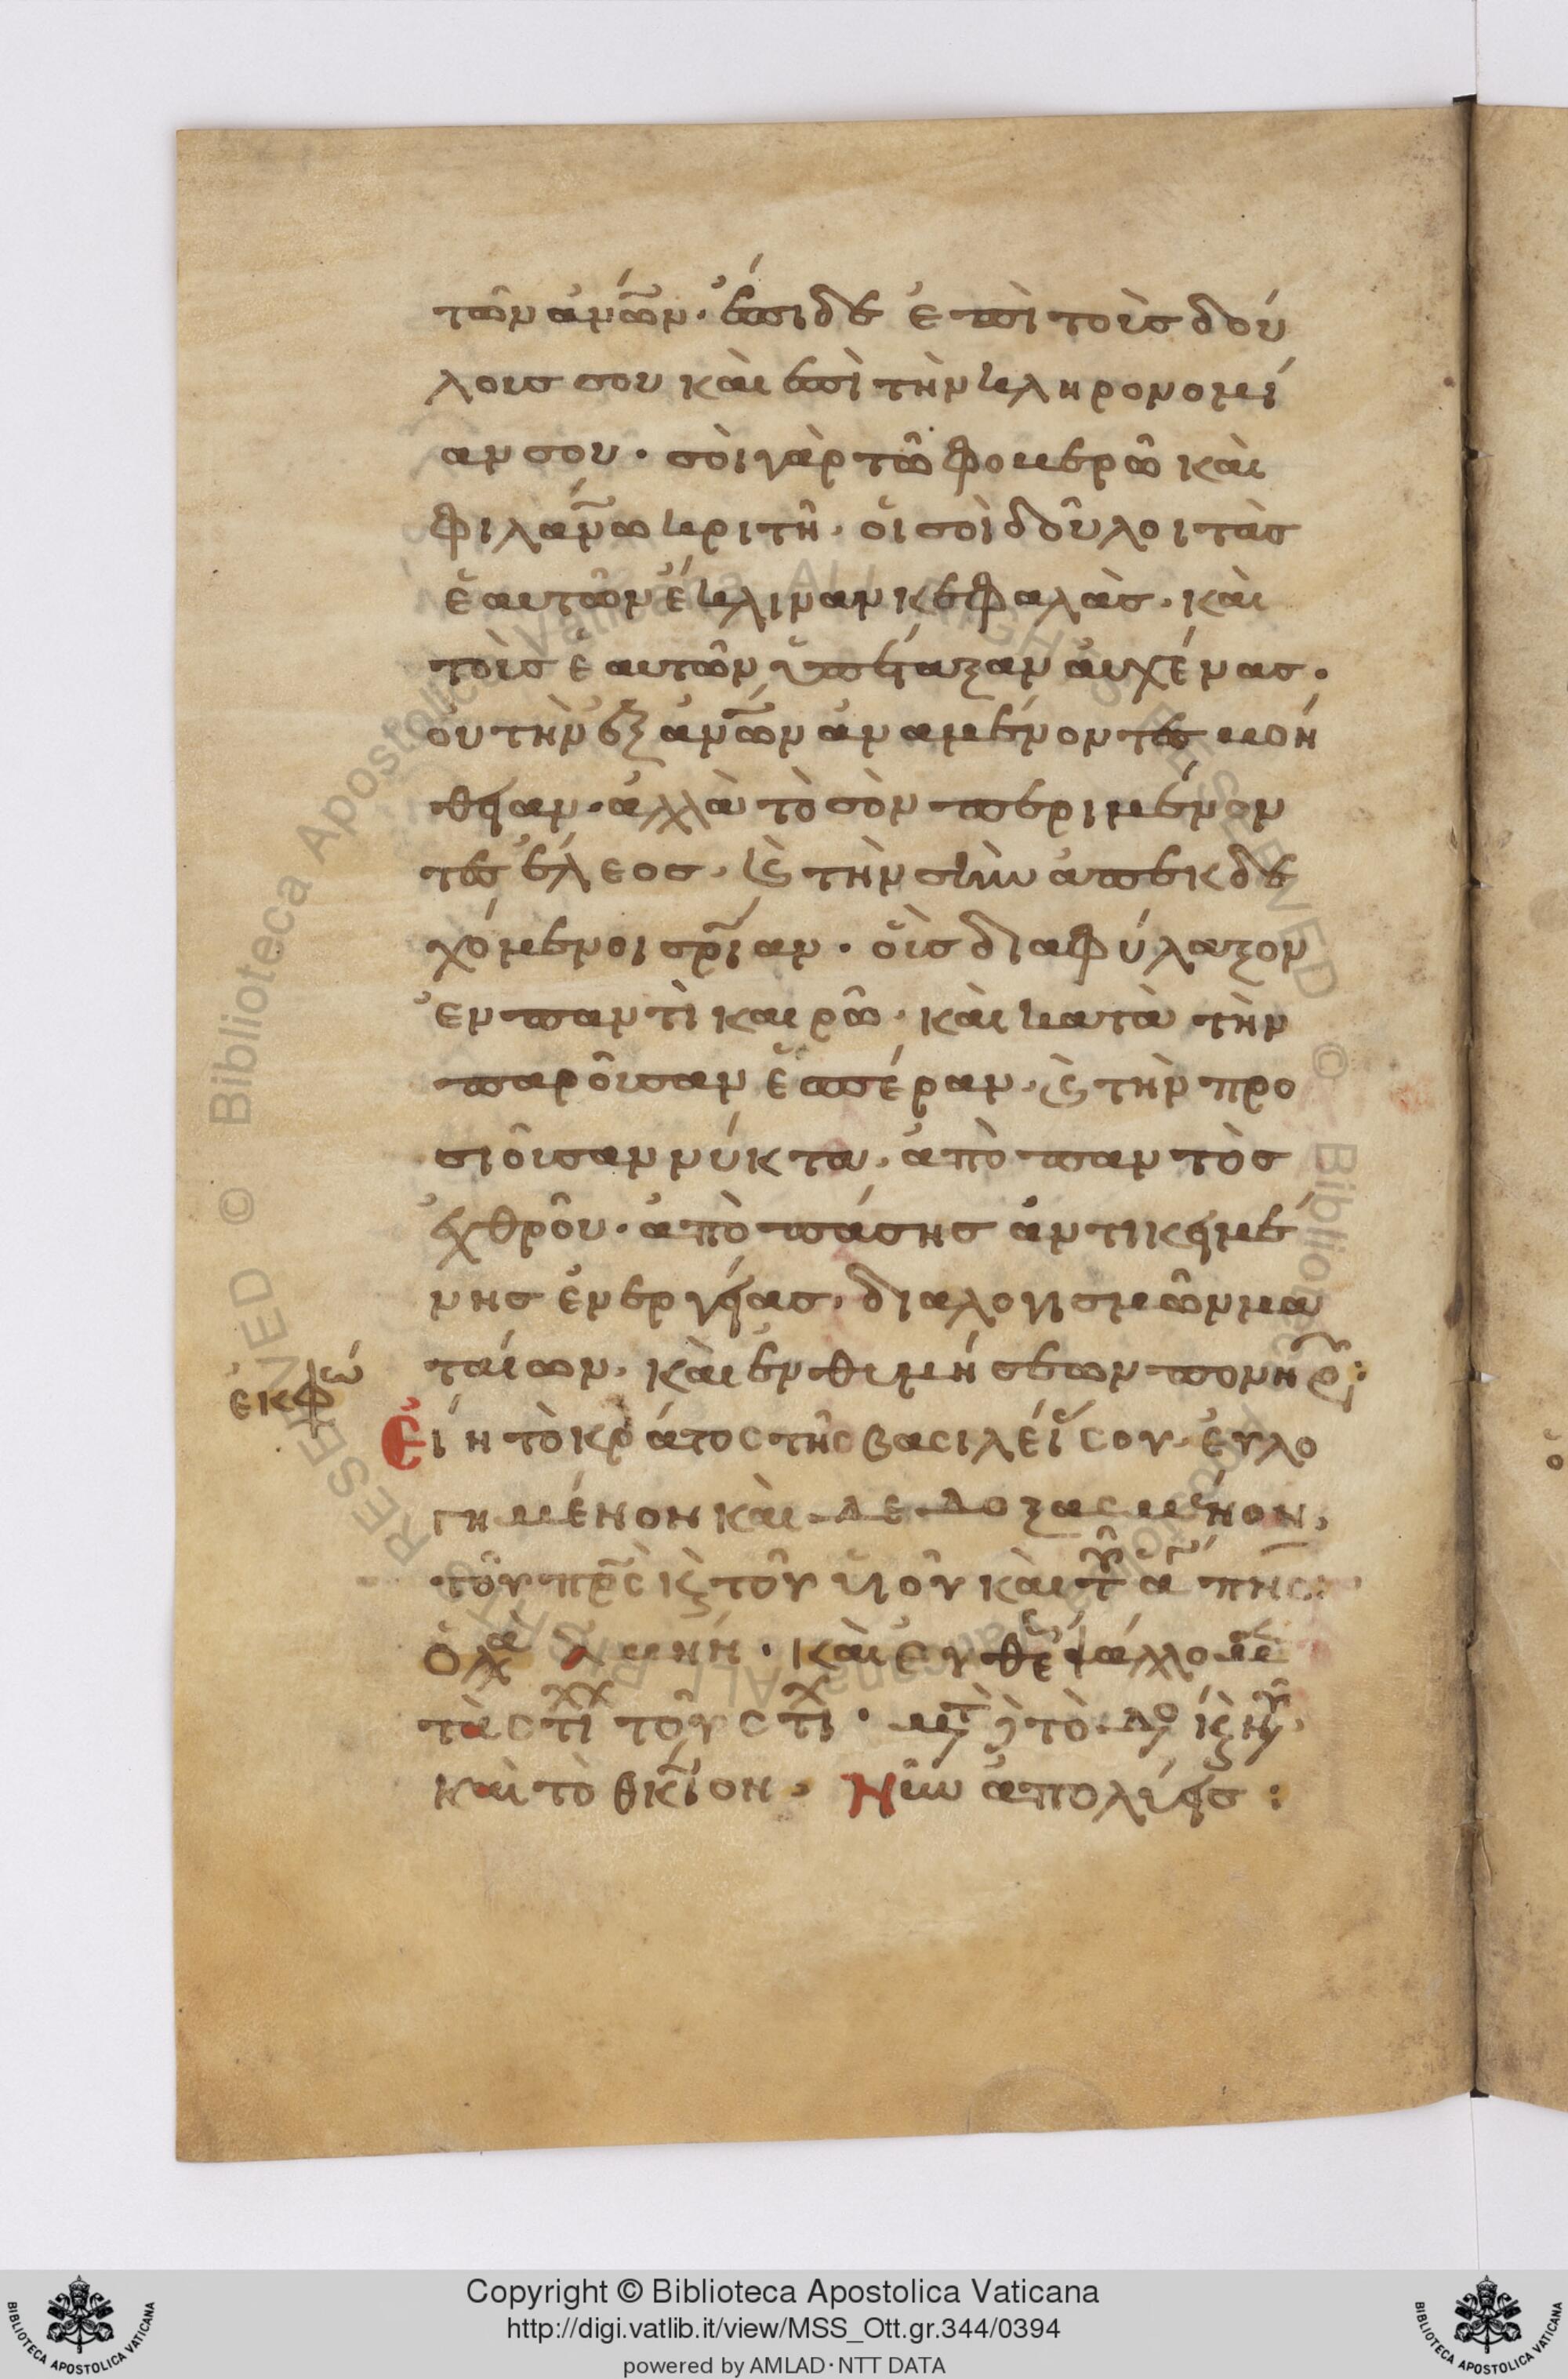 τῶν ἀν̅ω̅ν· ἔπιδε ἐπὶ τοὺς δού
λους σου καὶ ἐπὶ τὴν κληρονομί
αν σου· σοὶ γὰρ τῶ φοβερῶ καὶ
φιλαν̅ω κριτῆ· οἱ σοὶ δοῦλοι τὰς
ἑαυτῶν ἔκλιναν κεφαλὰς· καὶ
τοὺς ἑαυτῶν ὑπέταξαν αὐχένας·
οὐ τὴν ἐξ ἀν̅ω̅ν ἀναμένοντες βοή
θειαν· ἀλλὰ τὸ σὸν περιμένον
τες ἔλεος· καὶ τὴν σὴν ἀπεκδε
χόμενοι σρ̅ίαν· οὓς διαφύλαξον
ἐν παντὶ καιρῶ· καὶ κατὰ τὴν
παροῦσαν ἑσπέραν· καὶ τὴν προ
σιοῦσαν νύκτα· ἀπὸ παντὸς
ἐχθροῦ· ἀπὸ πάσης ἀντικειμέ
νης ἐνεργείας· διαλογισμῶν μα
ταίων· καὶ ἐνθυμήσεων πονηρ:
ἐκφώ
Εἴη τὸ κράτος τῆς βασιλεί σου· εὐλο
γημένον καὶ δεδοξασμένον,
τοῦ πρ̅ς κ τοῦ υἱοῦ καὶ τ ἁ πν̅ς·
καὶ
τὰ στιχ τοῦ στιχ·
καὶ τὸ θκ̅ίον· Νῦν ἀπολύεις:
Copyright © Biblioteca Apostolica Vaticana
http://digi.vatlib.it/view/MSS_Ott.gr.344/0394
powered by AMLAD·NTT DATA